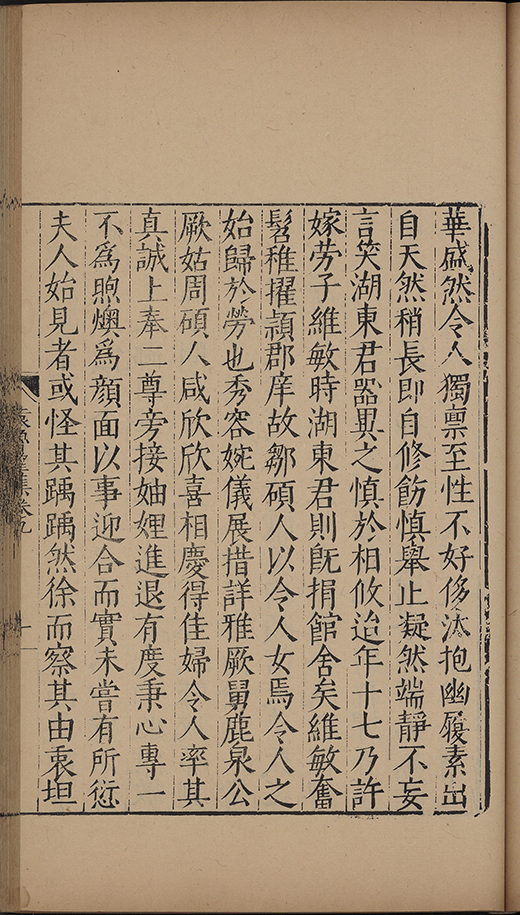 華戚然令人獨禀至性不好侈汰抱幽履素出
自天然稍長即自修飭慎舉止凝然端靜不妄
言笑湖東君器異之慎於相攸迨年十七乃許
嫁劳子維敏時湖東君則旣捐館舍矣維敏奮
髫稚擢頴郡庠故鄒碩人以令人女焉令人之
始歸於勞也秀容婉儀展措詳雅厥舅鹿泉公
厥姑周碩人咸欣欣喜相慶得佳婦令人率其
真誠上奉二尊旁接妯娌進退有度秉心專一
不為煦燠為顔面以事迎合而實未嘗有所愆
夫人始見者或怪其踽踽然徐而察其由衷坦